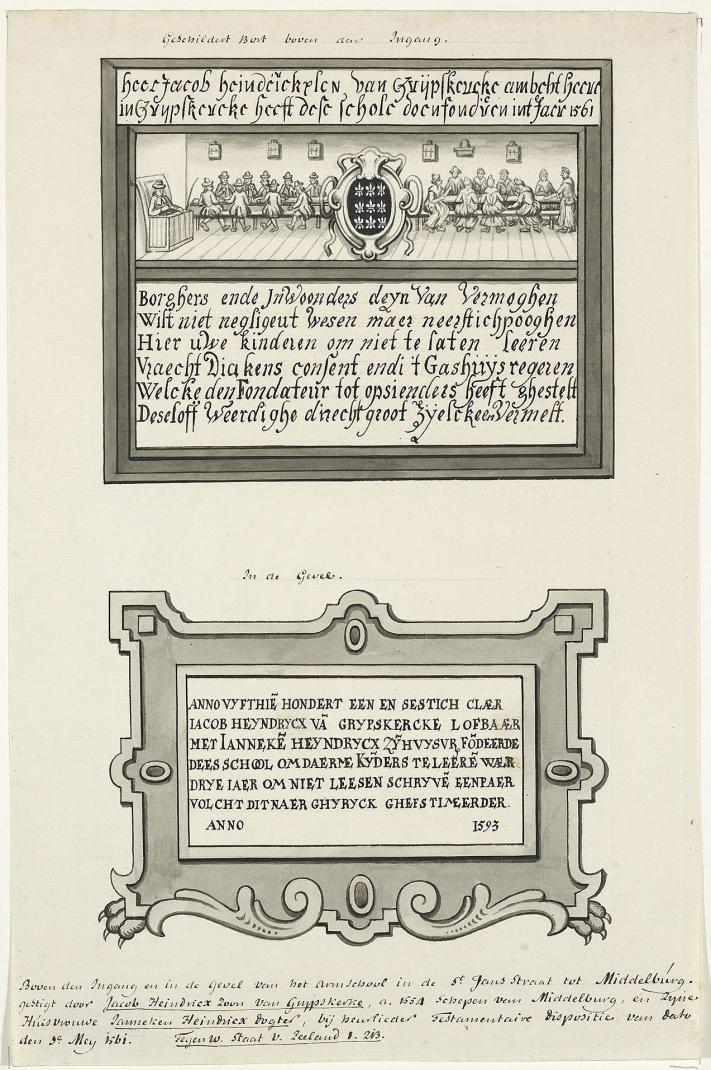 Geschildert Bort boven den Ingang.
heer Jacob heindrickxen van Grijpskercke ambocht heere
in Grijpskercke heeft dese schole doen fonderen int Jaer 1561
Borghers ende Jnwoonders cleyn van Vermoghen
Wilt niet negligent wesen maer neerstich pooghen
Hier uwe kinderen om niet te laten leeren
Vraecht Diakens consent endi 't Gashuijs regeren
Welcke den Fondateur tot opsienders heeft ghestelt
Deseloff Weerdighe d'inecht groot Vermelt.
In de Gevel.
ANNO VYFTHIẼ HONDERT EEN EN SESTICH CLÆR
IACOB HEYNDRYCX VÃ GRYPSKERCKE LOFBAÆR
MET IANNEKẼ HEYNDRYCX ZỸ HVYSVR FÕDEERDE
DEES SCHOOL OM DAERME KỸDERS TE LEERẼ WÆR
DRYE IAER OM NIET LEESEN SCHRYVẼ EENPAER
VOLCHT DIT NAER GHYRYCK GHEFSTIMEERDER.
ANNO 1593
Boven den Ingang en in de Gevel van het armschool in de St. Jans Straat tot Middelburg.
gestigt door Jacob Heindricx Zoon van Grijpskerke, a. 1554 Schepen van Middelburg, en Zyne
Huisvrouwe Janneken Heindricx dogter, bij heurlieder Testamentaire dispositie van dato
den 3e. Mey 1561. Tegenw. Staat v. Zeeland I. 213.